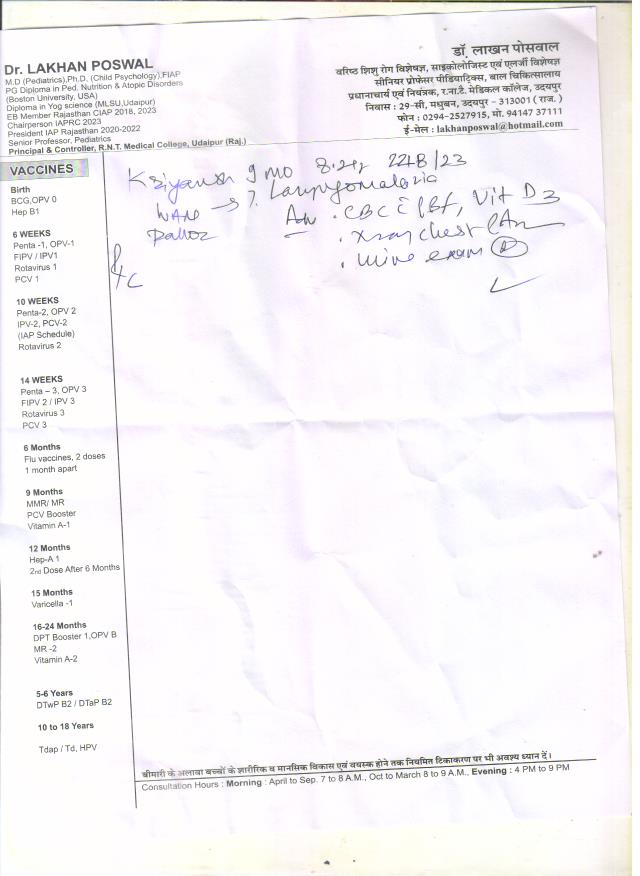 Dr. LAKHAN POSWAL
M.D (Pediatrics),Ph.D, (Child Psychology),FIAP
PG Diploma in Ped. Nutrition & Atopic Disorders
(Boston University, USA)
Diploma in Yog science (MLSU,Udaipur)
EB Member Rajasthan CIAP 2018, 2023
Chairperson IAPRC 2023
President IAP Rajasthan 2020-2022
Senior Professor, Pediatrics
Principal & Controller, R.N.T. Medical College, Udaipur (Raj.)
डॉ. लाखन पोसवाल
वरिष्ठ शिशु रोग विशेषज्ञ, साइकोलोजिस्ट एवं एलर्जी विशेषज्ञ
सीनियर प्रोफेसर पीडियाट्रिक्स, बाल चिकित्सालय
प्रधानाचार्य एवं नियंत्रक, र.ना.टै. मेडिकल कॉलेज, उदयपुर
निवास : 29-सी, मधुबन, उदयपुर - 313001 ( राज. )
फोन : 0294-2527915, मो. 94147 37111
ई-मेल : lakhanposwal@hotmail.com
Kriyansh 9 mo 8.2kg 22/8/23
? Laryngomalacia
Pallor
Adv . CBC PBF, Vit D3
. xray chest PA
. urine exam
VACCINES
Birth
BCG,OPV 0
Hep B1
6 WEEKS
Penta -1, OPV-1
FIPV / IPV1
Rotavirus 1
PCV 1
10 WEEKS
Penta-2, OPV 2
IPV-2, PCV-2
(IAP Schedule)
Rotavirus 2
14 WEEKS
Penta – 3, OPV 3
FIPV 2 / IPV 3
Rotavirus 3
PCV 3
6 Months
Flu vaccines, 2 doses
1 month apart
9 Months
MMR/ MR
PCV Booster
Vitamin A-1
12 Months
Hep-A 1
2nd Dose After 6 Months
15 Months
Varicella -1
16-24 Months
DPT Booster 1,OPV B
MR -2
Vitamin A-2
5-6 Years
DTwP B2 / DTaP B2
10 to 18 Years
Tdap / Td, HPV
बीमारी के अलावा बच्चों के शारीरिक व मानसिक विकास एवं वयस्क होने तक नियमित टिकाकरण पर भी अवश्य ध्यान दें।
Consultation Hours : Morning : April to Sep. 7 to 8 A.M., Oct to March 8 to 9 A.M., Evening : 4 PM to 9 PM